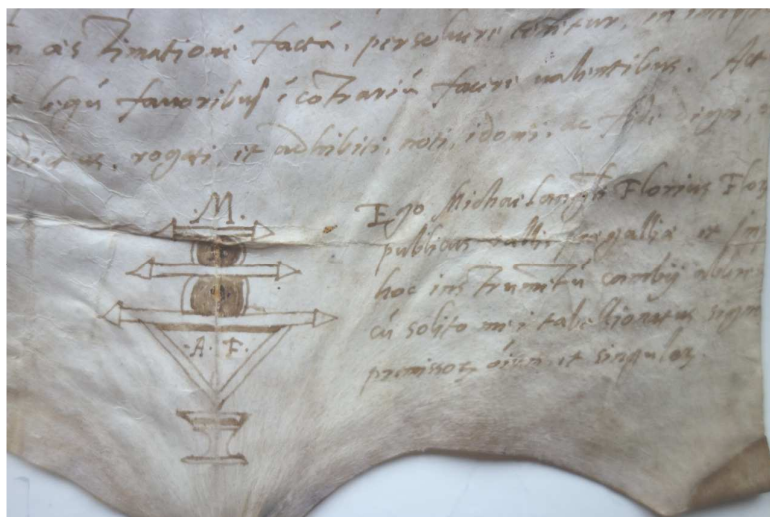 æstimationē factā, persoluere tenetur, in
legū fauoribus ī cōtrariū facere ualentibus. Act
rogati, et adhibiti, noti, idonei, ac fide digni,
.M.
.A. F.
Ego Michaelangelus Florius Flor
publicus uallis prægalliæ et Im
hoc instrumētū cambij
cū solito mei tabellionatus sign
præmissoꝝ oium et singuloꝝ.